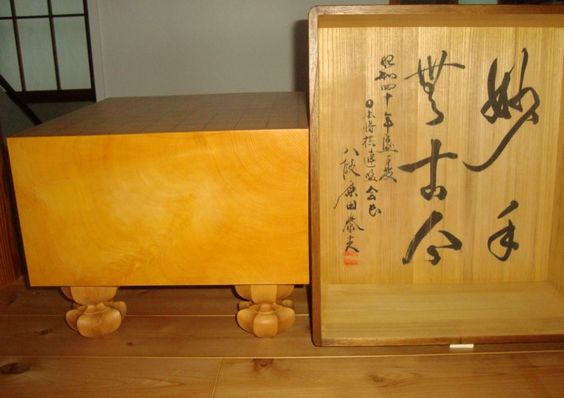 妙手
無古今
昭和四十年
日本将棋連盟会長
八段 原田泰夫